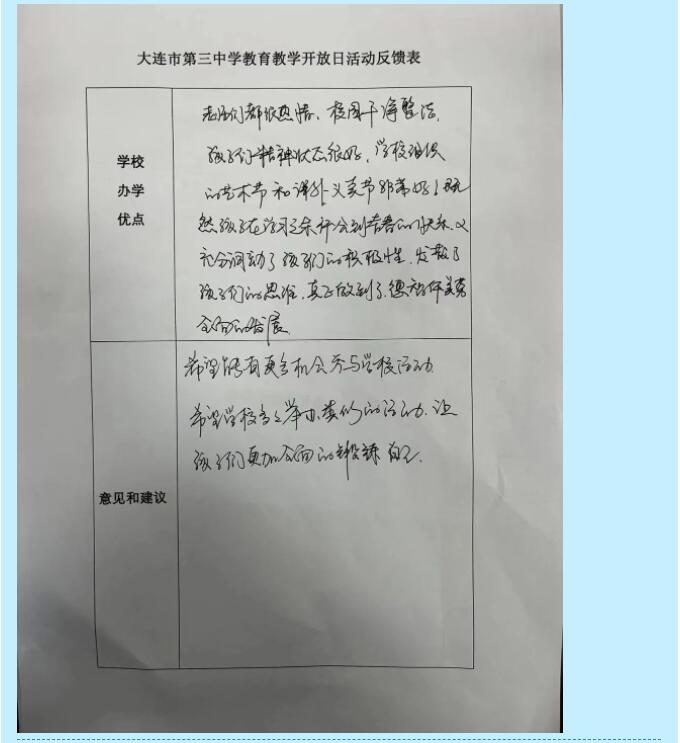 大连市第三中学教育教学开放日活动反馈表
学校
办学
优点
老师们都很热情、校园干净整洁,
孩子们精神状态很好,学校组织
的艺术节和课外义卖节非常好!既
然孩子在学习之余体会到青春的快乐,又
充分调动了孩子们的积极性,发散了
孩子们的思维,真正做到了,德智体美劳
全面的发展
意见和建议
希望能有更多机会参与学校活动
希望学校多多举办类似的活动,让
孩子们更加全面的锻炼自己.